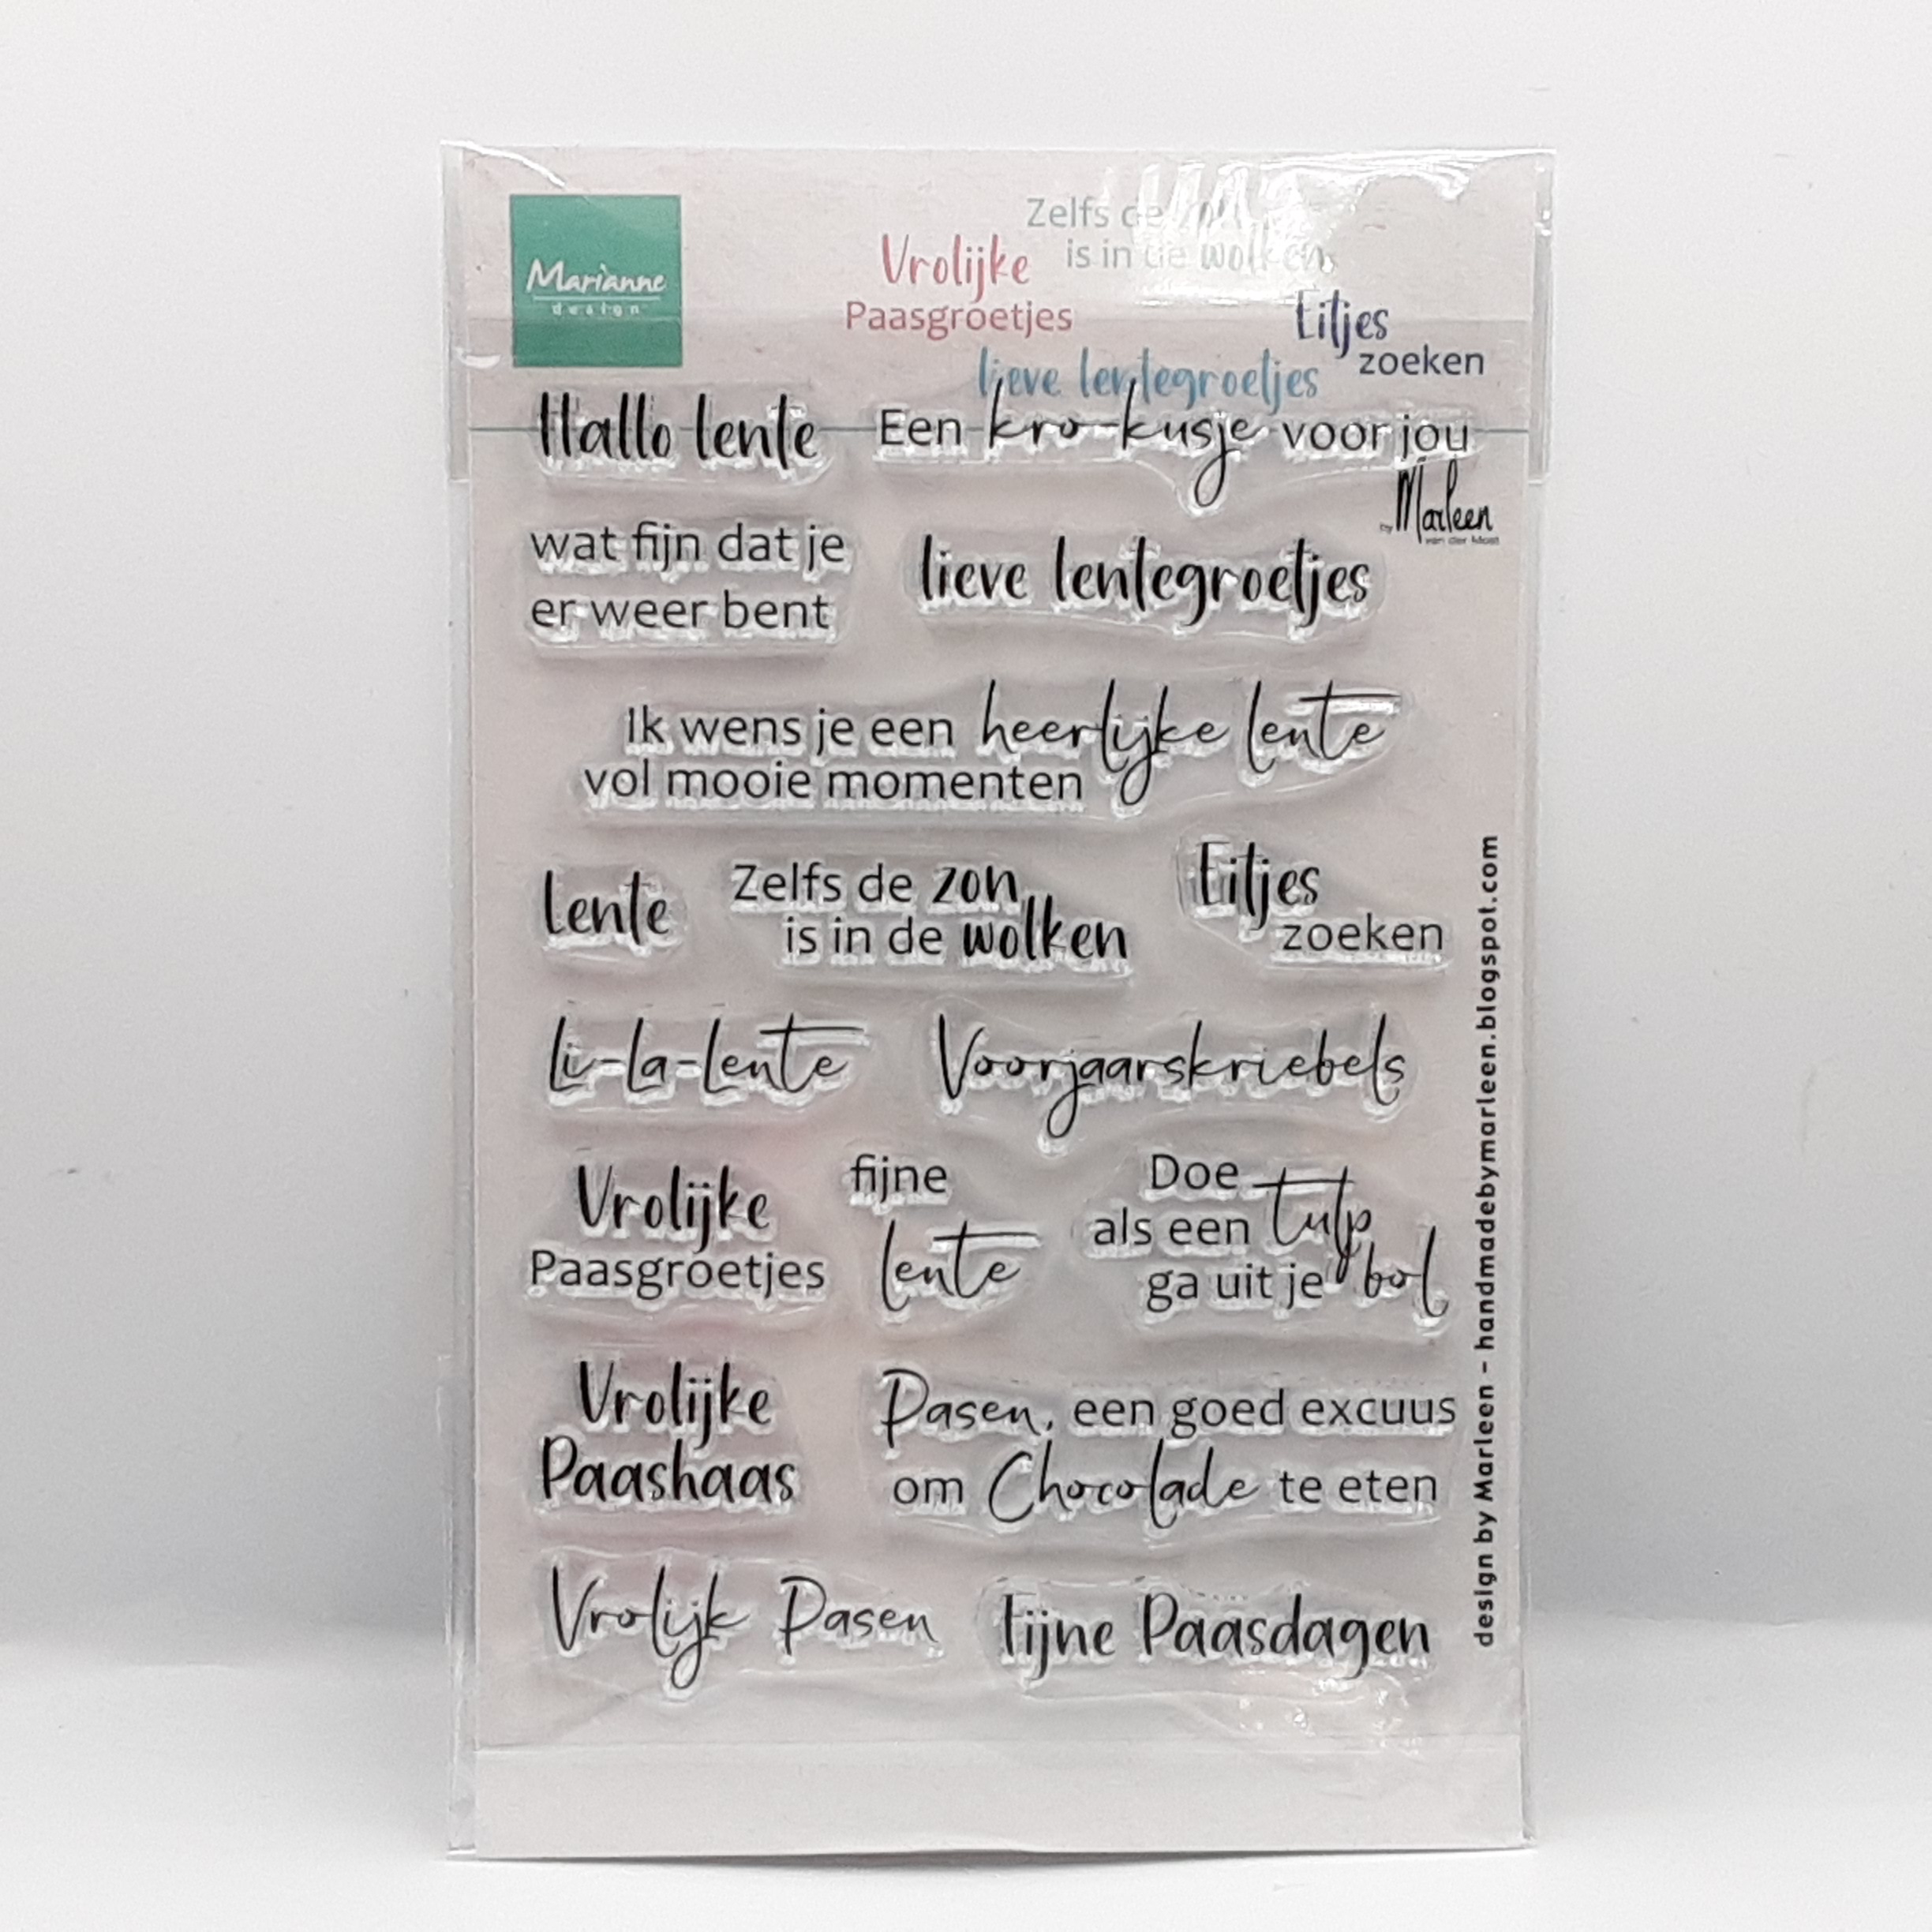 Marianne
design
Zelfs de zon
is in de wolken
Vrolijke
Paasgroetjes
Eitjes
zoeken
lieve lentegroetjes
Hallo lente
Een kro-kusje voor jou
by Marleen
van der Most
wat fijn dat je
er weer bent
lieve lentegroetjes
Ik wens je een heerlijke lente
vol mooie momenten
Lente
Zelfs de zon
is in de wolken
Eitjes
zoeken
Li-La-Lente
Voorjaarskriebels
Vrolijke
Paasgroetjes
fijne
lente
Doe
als een tulp
ga uit je bol
Vrolijke
Paashaas
Pasen, een goed excuus
om Chocolade te eten
Vrolijk Pasen
Fijne Paasdagen
design by Marleen - handmadebymarleen.blogspot.com